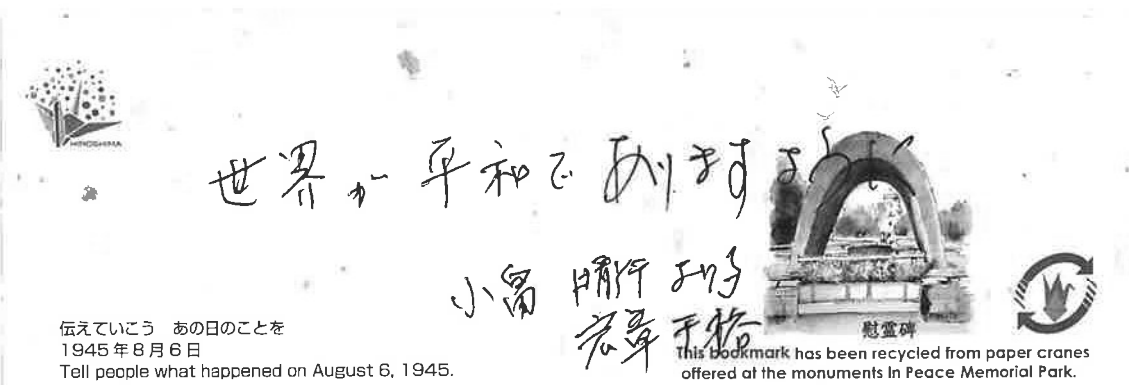 HIROSHIMA
世界が平和でありますように
小畠 晴行 より子
宏章 千裕
伝えていこう あの日のことを
1945年8月6日
Tell people what happened on August 6, 1945.
慰霊碑
This bookmark has been recycled from paper cranes
offered at the monuments in Peace Memorial Park.